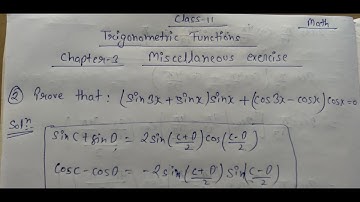 Class-11
Math
Trigonometric Functions
Chapter-3 Miscellaneous exercise
② Prove that: (sin3x + sinx) sinx + (cos3x - cosx) cosx = 0
Solⁿ.
sinC + sinD = 2sin((C+D)/2) cos((C-D)/2)
cosC - cosD = -2sin((C+D)/2) sin((C-D)/2)